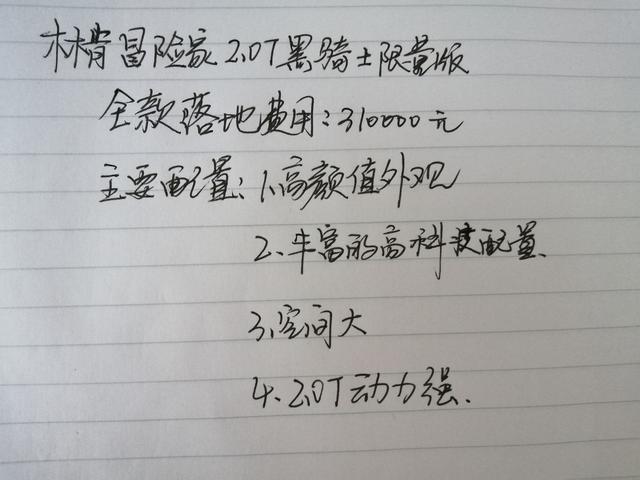 林肯冒险家2.0T黑骑士限量版
全款落地费用:310000元
主要配置:1.高颜值外观
2.丰富的高科技配置.
3.空间大
4.2.0T动力强.